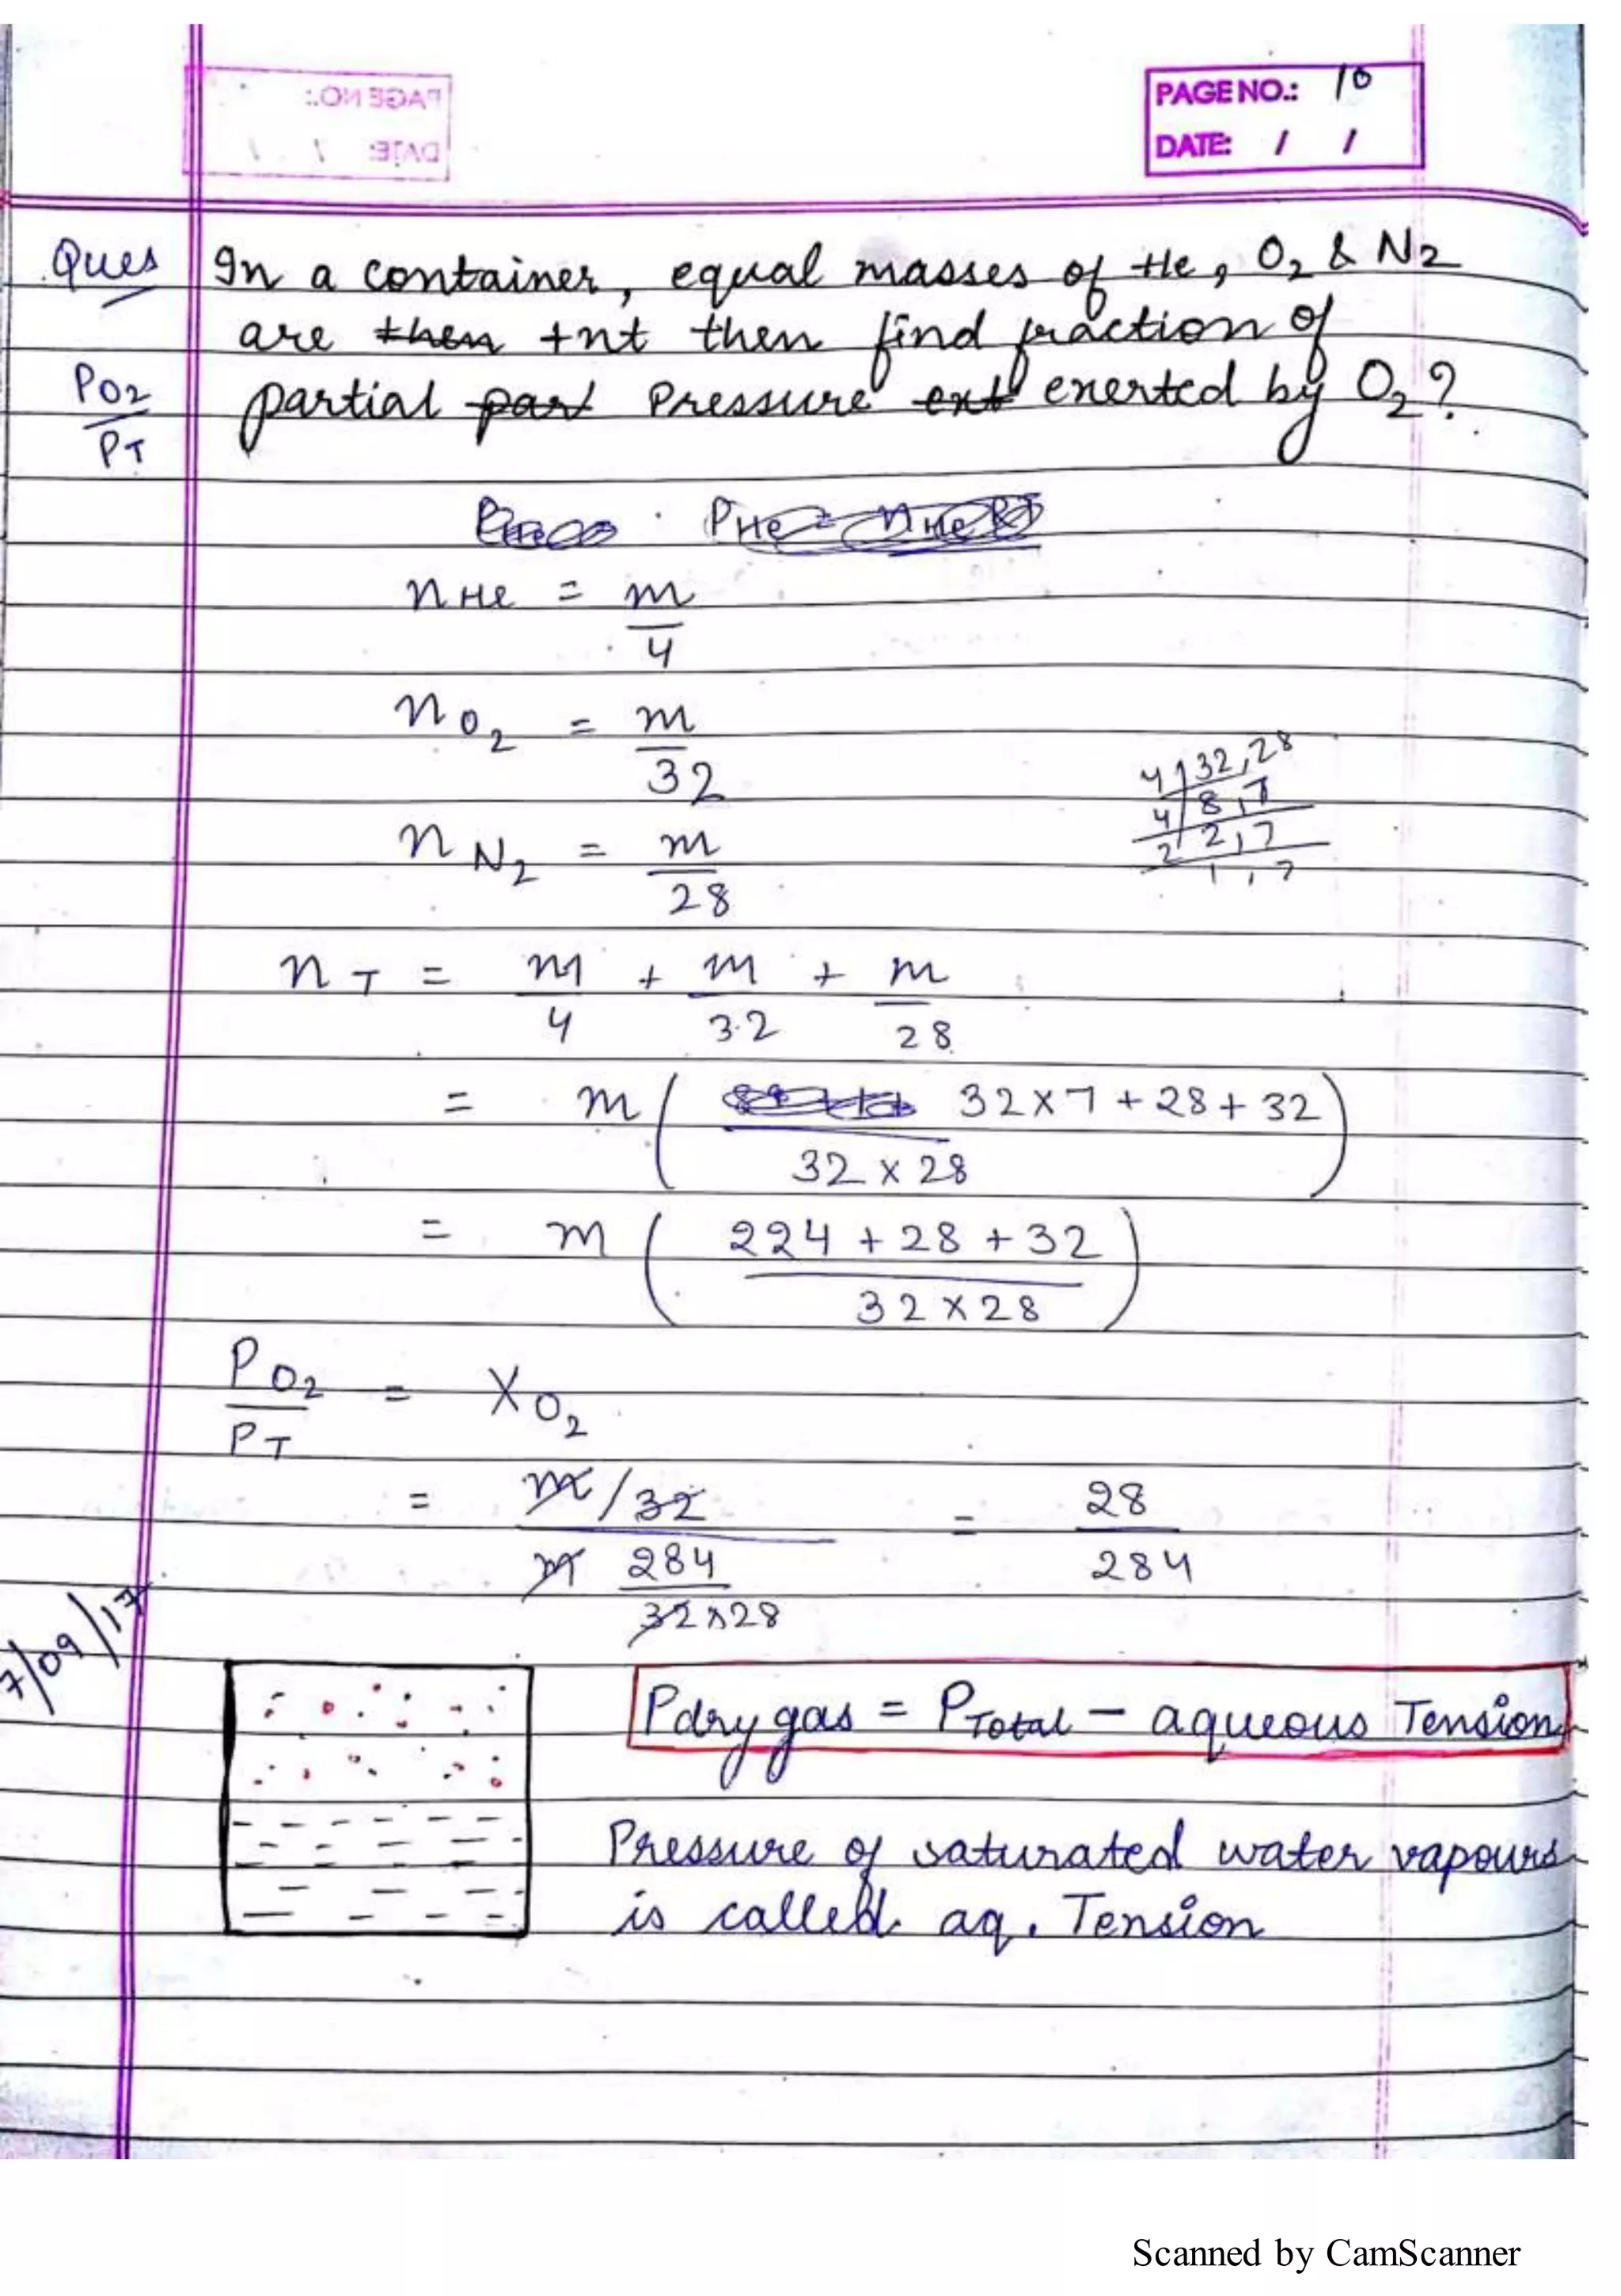 PAGE NO.: 10
DATE: / /
Ques In a container, equal masses of He, O2 & N2
are then +nt then find fraction of
PO2/PT partial part Pressure ext exerted by O2?
PHe = nHe RT
nHe = m/4
nO2 = m/32
4 | 32, 28
4 | 8, 7
2 | 2, 7
1, 7
nN2 = m/28
nT = m/4 + m/32 + m/28
= m ( 32×7+28+32 / 32×28 )
= m ( 224+28+32 / 32×28 )
PO2/PT = XO2
= m/32 / m 284/32×28 = 28/284
7/09/17
Pdry gas = PTotal – aqueous Tension
Pressure of saturated water vapours
is called aq. Tension
Scanned by CamScanner